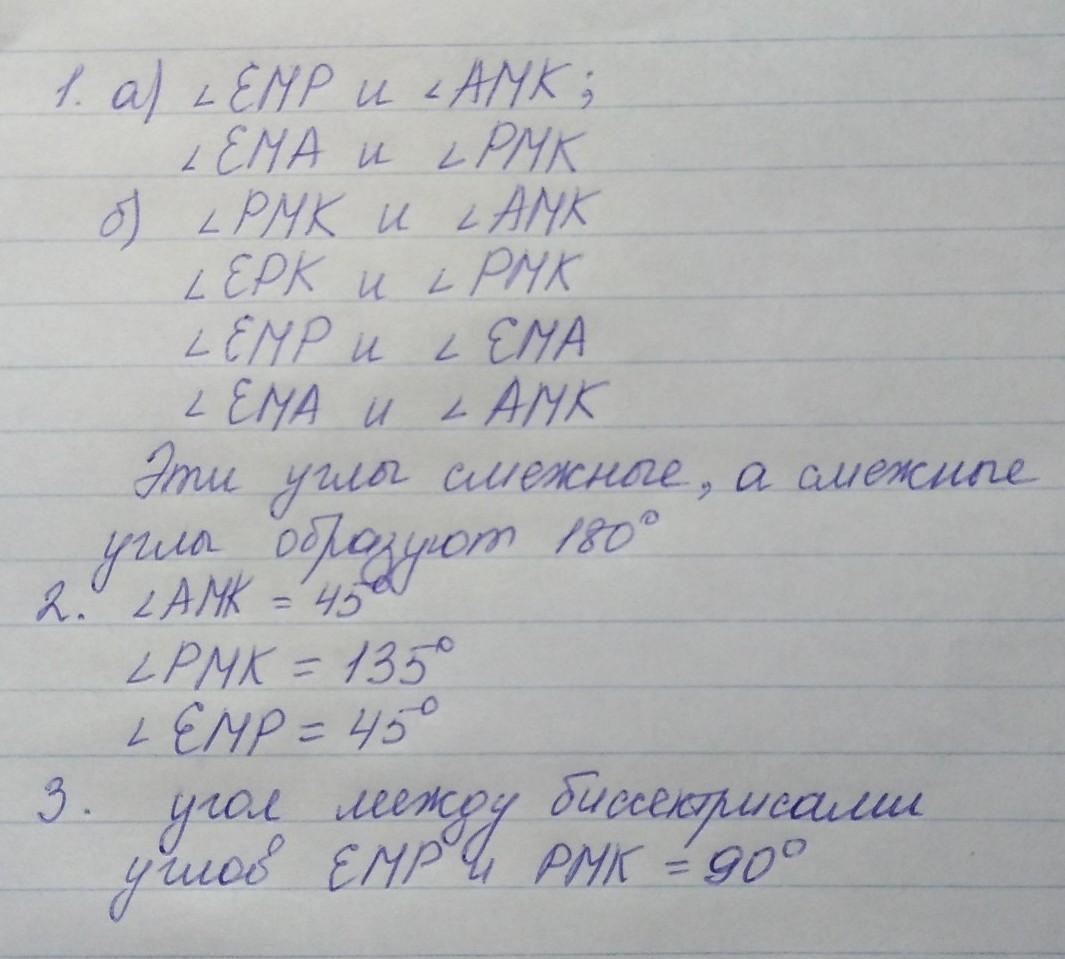 1. а) ∠EMP и ∠AMK;
∠EMA и ∠PMK
б) ∠PMK и ∠AMK
∠EPK и ∠PMK
∠EMP и ∠EMA
∠EMA и ∠AMK
Эти углы смежные, а смежные
углы образуют 180°
2. ∠AMK = 45°
∠PMK = 135°
∠EMP = 45°
3. угол между биссектрисами
углов EMP и PMK = 90°